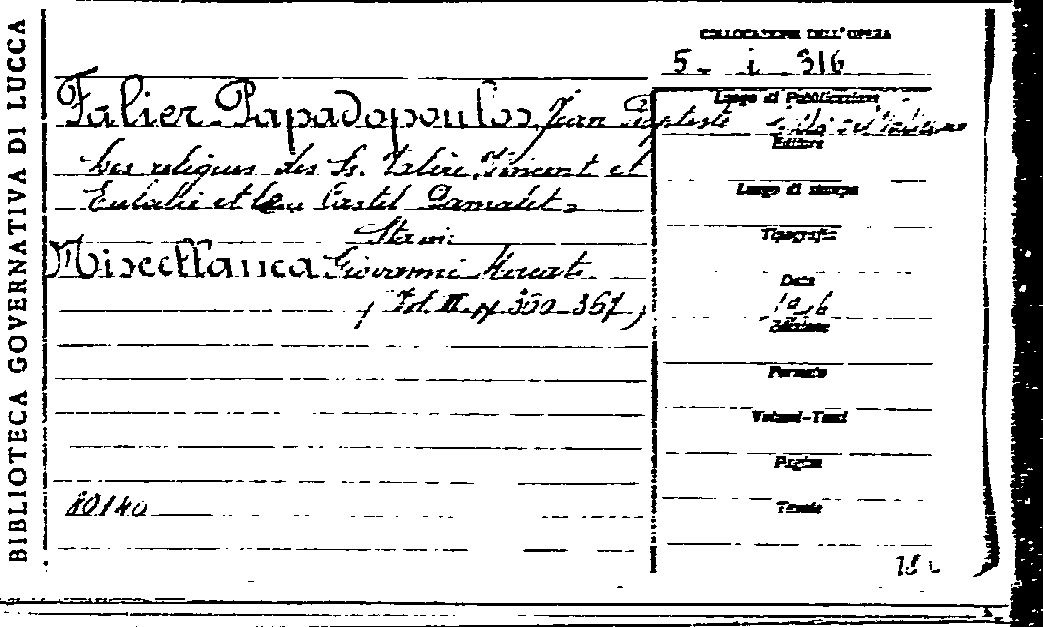 BIBLIOTECA GOVERNATIVA DI LUCCA
COLLOCAZIONE DELL'OPERA
5 - i 316
Falier Papadopoulos Jean Baptiste
Les reliques des Ss. Valère, Vincent et
Eulalie et le Castel Damalet
Miscellanea Giovanni Mercati
(Vol. III. pp 360-367)
80140
Luogo di Pubblicazione
Editore
Luogo di stampa
Tipografia
Data
Edizione
Formato
Volumi-Tomi
Pagine
Tavole